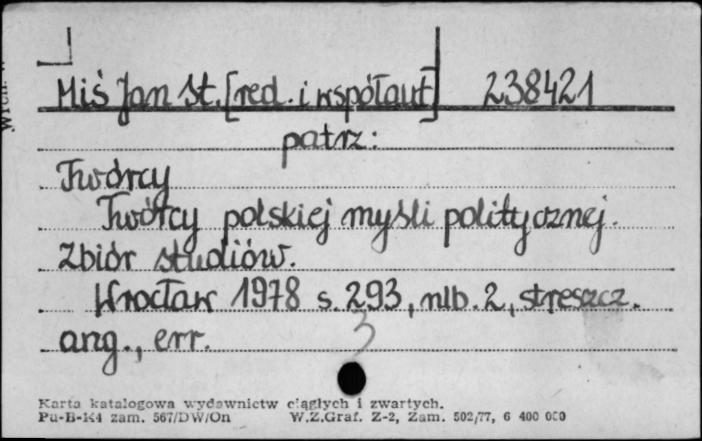 Miś Jan St. [red. i współaut] 238421
patrz:
Twórcy
Twórcy polskiej myśli politycznej.
Zbiór studiów.
Wrocław 1978 s. 293, nlb. 2, streszcz.
ang., err.
3
Karta katalogowa wydawnictw ciągłych i zwartych.
Pu-B-K4 zam. 567/DW/On W.Z.Graf. Z-2, Zam. 502/77, 6 400 000